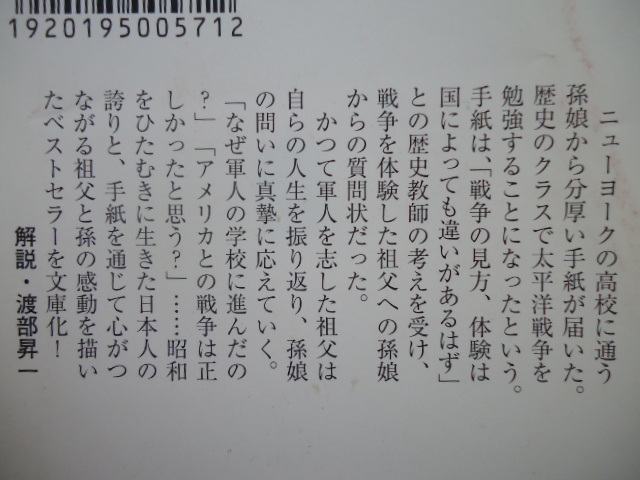 1920195005712
ニューヨークの高校に通う
孫娘から分厚い手紙が届いた。
歴史のクラスで太平洋戦争を
勉強することになったという。
手紙は、「戦争の見方、体験は
国によっても違いがあるはず」
との歴史教師の考えを受け、
戦争を体験した祖父への孫娘
からの質問状だった。
かつて軍人を志した祖父は
自らの人生を振り返り、孫娘
の問いに真摯に応えていく。
「なぜ軍人の学校に進んだの
?」「アメリカとの戦争は正
しかったと思う?」……昭和
をひたむきに生きた日本人の
誇りと、手紙を通じて心がつ
ながる祖父と孫の感動を描い
たベストセラーを文庫化!
解説・渡部昇一